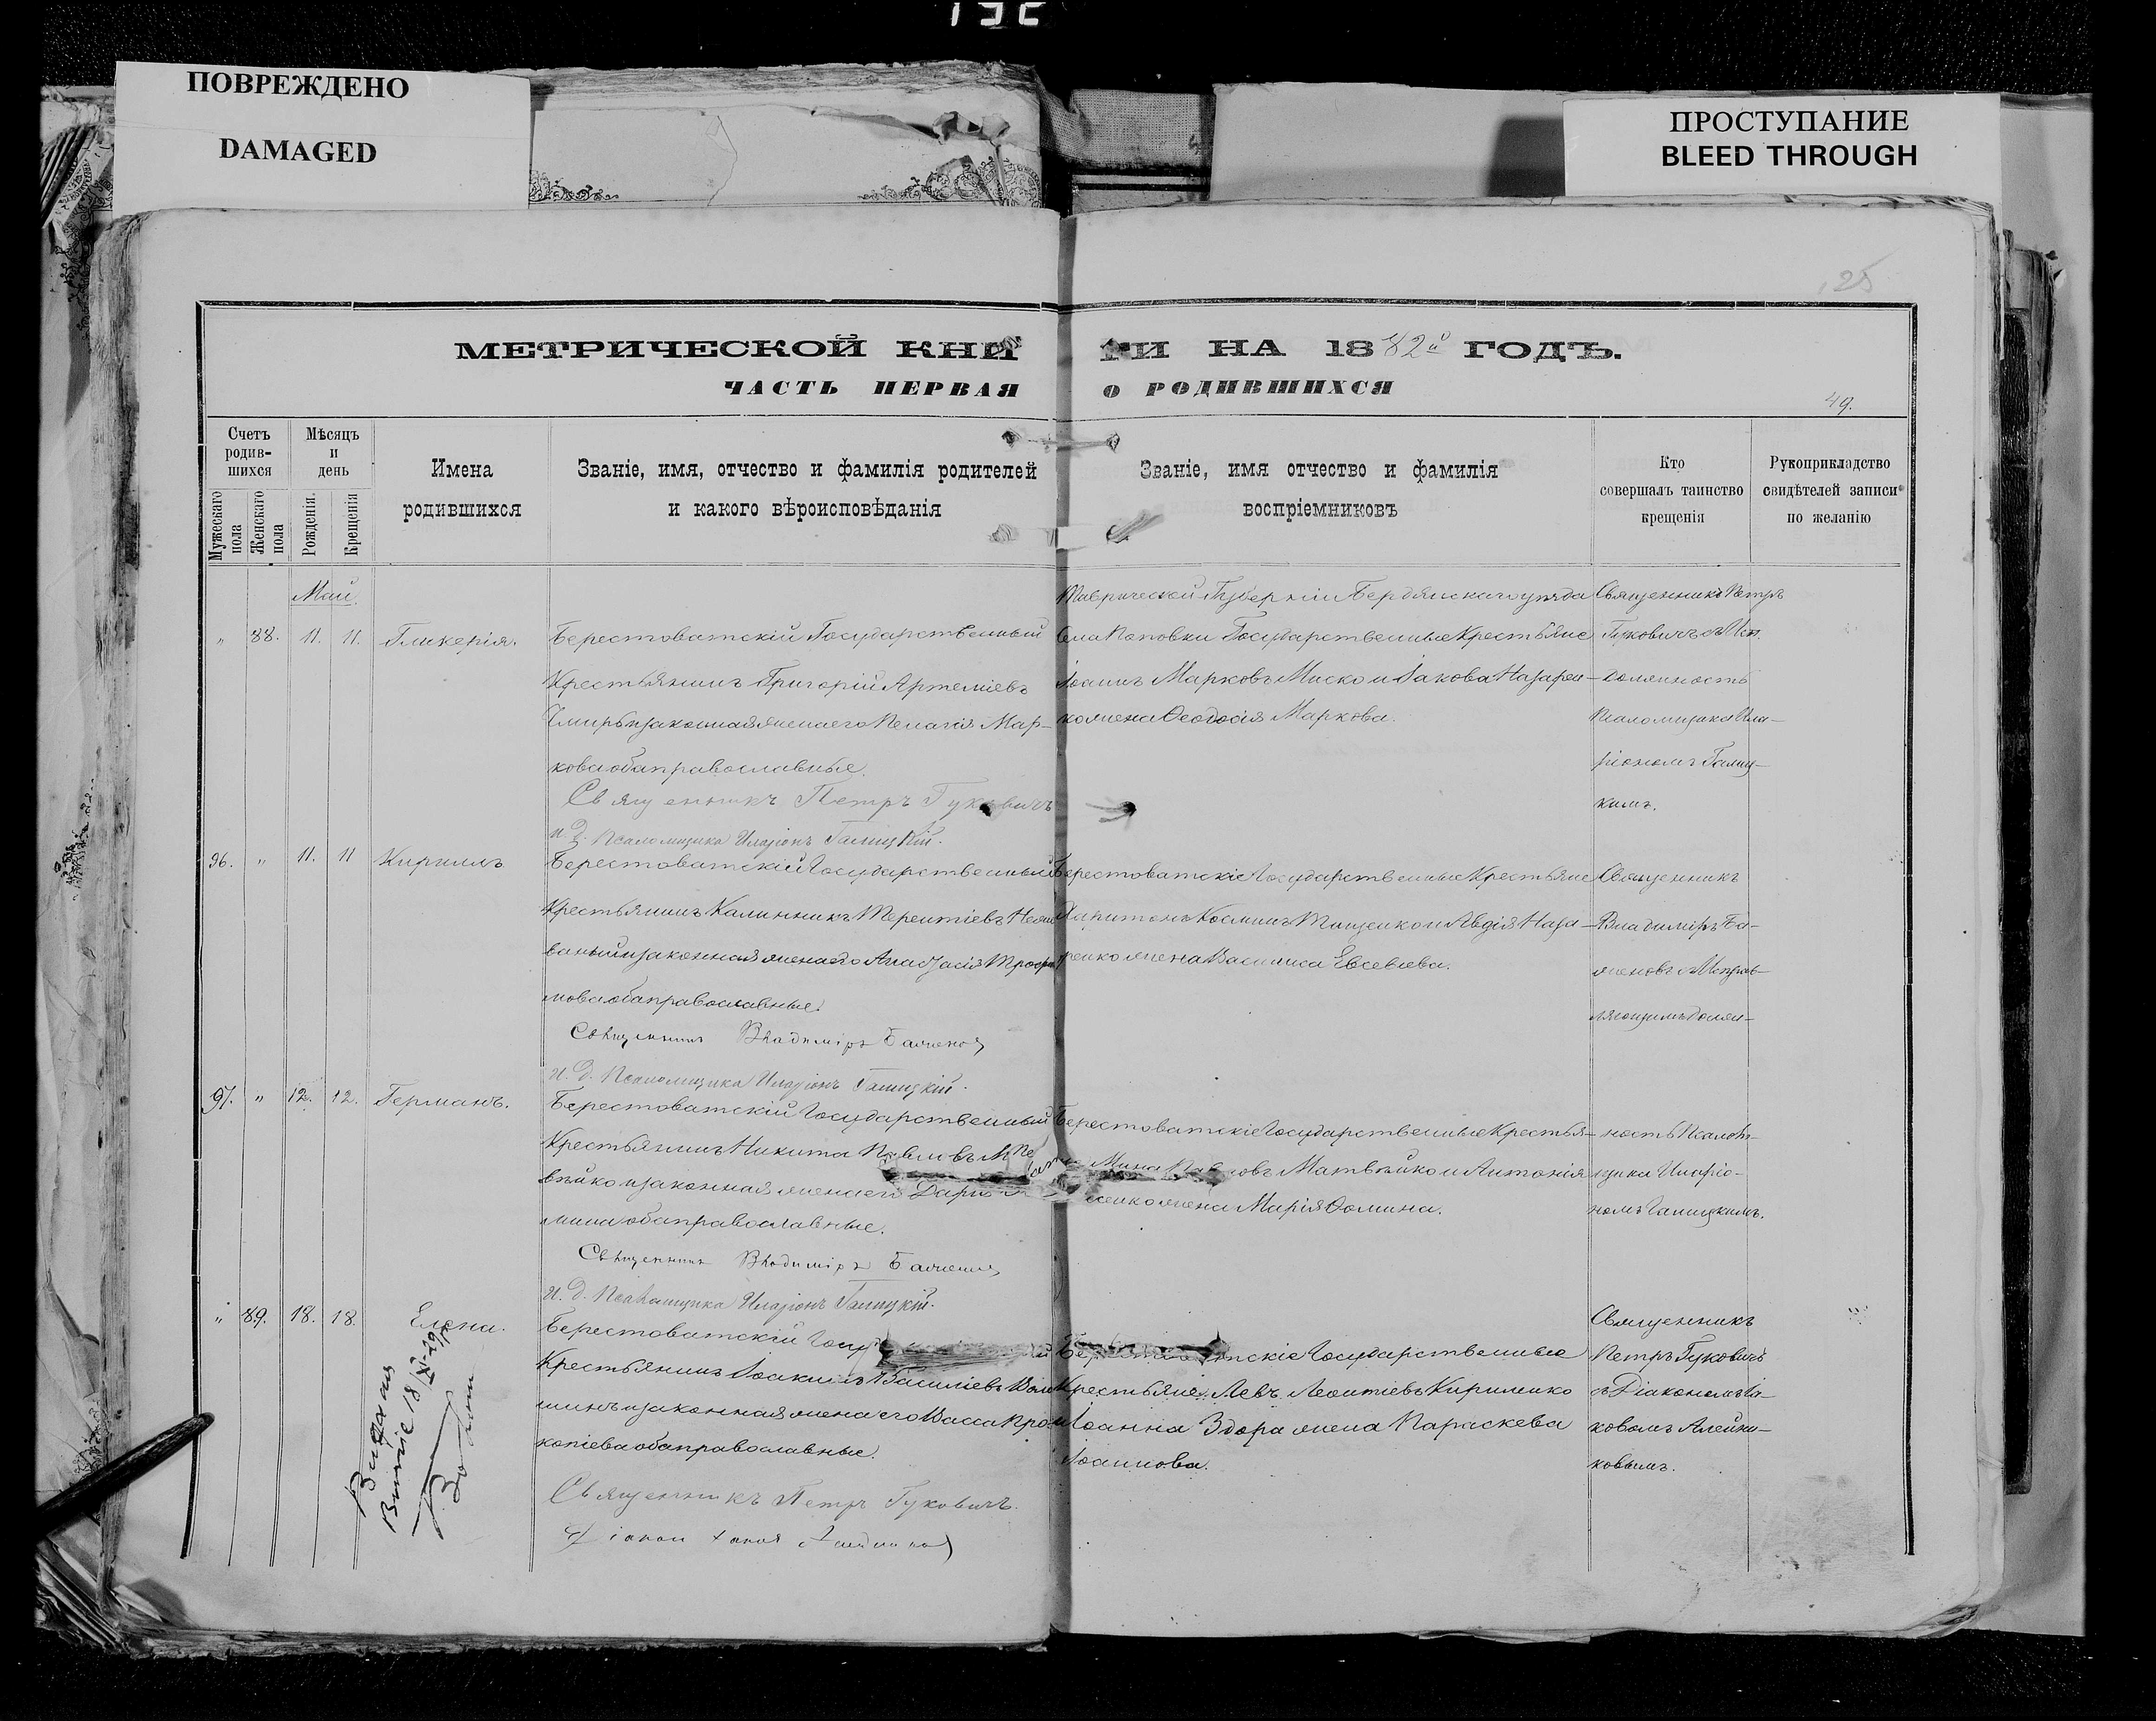 ПОВРЕЖДЕНО
DAMAGED
ПРОСТУПАНИЕ
BLEED THROUGH
25
МЕТРИЧЕСКОЙ КНИГИ НА 1882й ГОДЪ.
ЧАСТЬ ПЕРВАЯ О РОДИВШИХСЯ
49.
Счетъ родив-шихся
Мужескаго пола
Женскаго пола
Мѣсяцъ и день
Рожденія.
Крещенія
Имена родившихся
Званіе, имя, отчество и фамилія родителей
и какого вѣроисповѣданія
Званіе, имя отчество и фамилія
воспріемниковъ
Кто
совершалъ таинство
крещенія
Рукоприкладство
свидѣтелей записи
по желанію
Май.
" 88. 11. 11. Гликерія.
Берестоватскій Государственный
Крестьянинъ Григорій Артеміевъ
и законная жена его Пелагія Мар-
кова оба православные.
Священникъ Петръ Гуковичъ
и. д. Псаломщика Иларіонъ Галицкій.
Таврической Губерніи Бердянскаго уѣзда
Села Поповки Государственные Крестьяне
Іоаннъ Марковъ Миско и Іакова Назарен-
ко жена Ѳеодосія Маркова.
Священникъ Петръ
Гуковичъ съ Исп.
должность
Псаломщика Ила-
ріономъ Галиц-
кимъ.
96. " 11. 11 Кириллъ
Берестоватскій Государственный
Крестьянинъ Калинникъ Терентіевъ
и законная жена его Анастасія Трофи-
мова оба православные.
Священникъ Владиміръ Баженов
и. д. Псаломщика Иларіонъ Галицкій.
Берестоватскіе Государственные Крестьяне
Харитонъ Косминъ Тищенко и Авдія Наза-
ренко жена Василиса Евсевіева.
Священникъ
Владиміръ Ба-
женовъ съ Исправ-
ляющимъ долж-
97. " 12. 12. Германъ.
Берестоватскій Государственный
Крестьянинъ Никита Павловъ Мат-
вѣйко и законная жена его Дарія
мина оба православные.
Священникъ Владиміръ Баженов
и. д. Псаломщика Иларіонъ Галицкій.
Берестоватскіе Государственные Крестья-
не Мина Павловъ Матвѣйко и Антонія
енко жена Марія Ѳомина.
ность Псалом-
щика Иларіо-
номъ Галицкимъ.
" 89. 18. 18. Елена.
Берестоватскій Госу
Крестьянинъ Іоакимъ Василіевъ Воло-
шинъ и законная жена его Васса Про-
копіева оба православные.
Священникъ Петръ Гуковичъ.
Діаконъ Іаковъ Алейников
Берестоватскіе Государственные
Крестьяне Левъ Леонтіевъ Кириленко
Іоанна Здора жена Параскева
Іоаннова.
Священникъ
Петръ Гуковичъ
съ Діакономъ Іа-
ковомъ Алейни-
ковымъ.